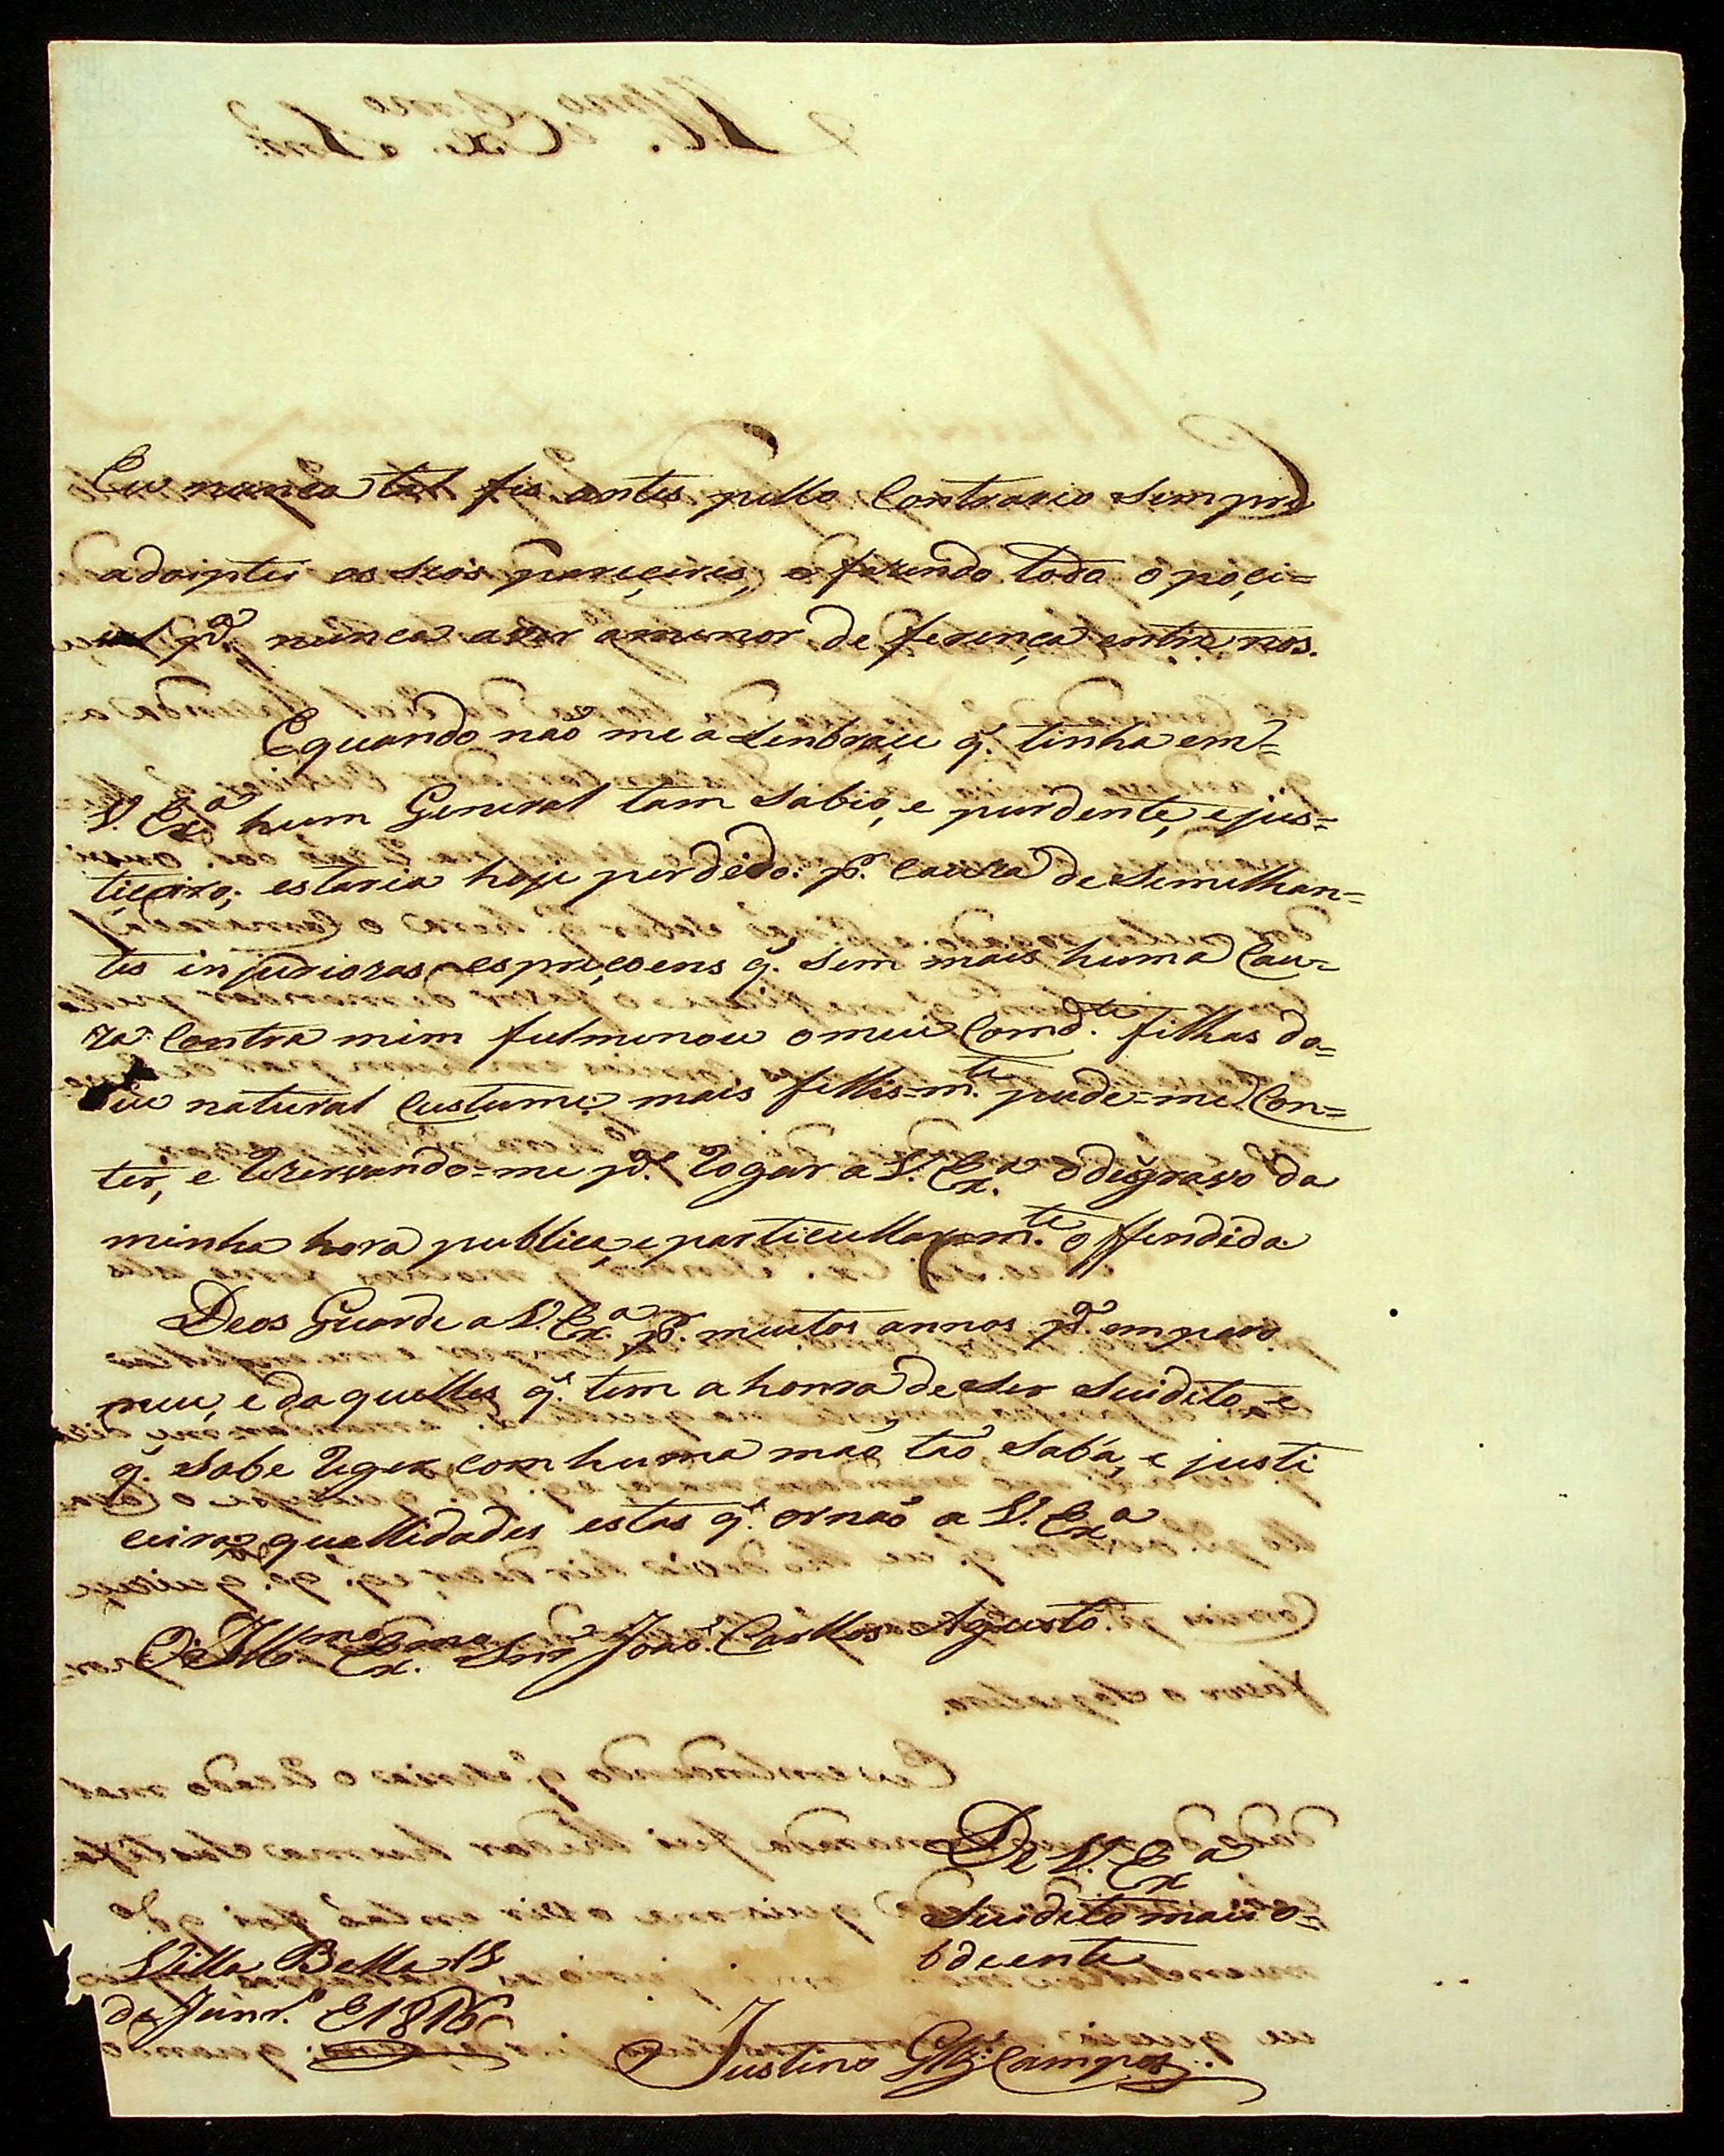 Eu nunca tal fis antes pello Contrario Sempre
adoiptei os seos pareçeres, e fazendo todo o poçi=
vel p.ª nunca aver amenor de ferença entre nos.
E quando não me a Lenbraçe q. tinha em=
V. Ex.ª hum General tam Sabio, e purdente, e jus=
ticeiro, estaria hoje perdido. p.r Cauza de Semilhan=
tes injuriozas espreçoens q. Sem mais huma Cau=
za Contra mim fulminou o meu Comd.te filhas do=
seu natural Custume; mais fellis=m.te pude=me Con=
ter, e Rezervando=me p.ª Rogar a V. Ex.ª o dezgravo da
minha honra publica, e particullarm.te offendida
Deos Guarde a V. Ex.ª p.r muitos annos p.ª emparo
meu, e daquelles q. tem a honra de Ser Suidito, e
q. Sabe Reger com huma mão tão Sabia, e justi
ceira, quallidades estas q. ornão a V. Ex.ª
De Ill.mo Ex.mo Snr João Carllos Agusto.
De V. Ex.ª
Suidito mais o=
bdeente
Villa Bella 18
de Janr.º E 1816
Justino Glz Campos